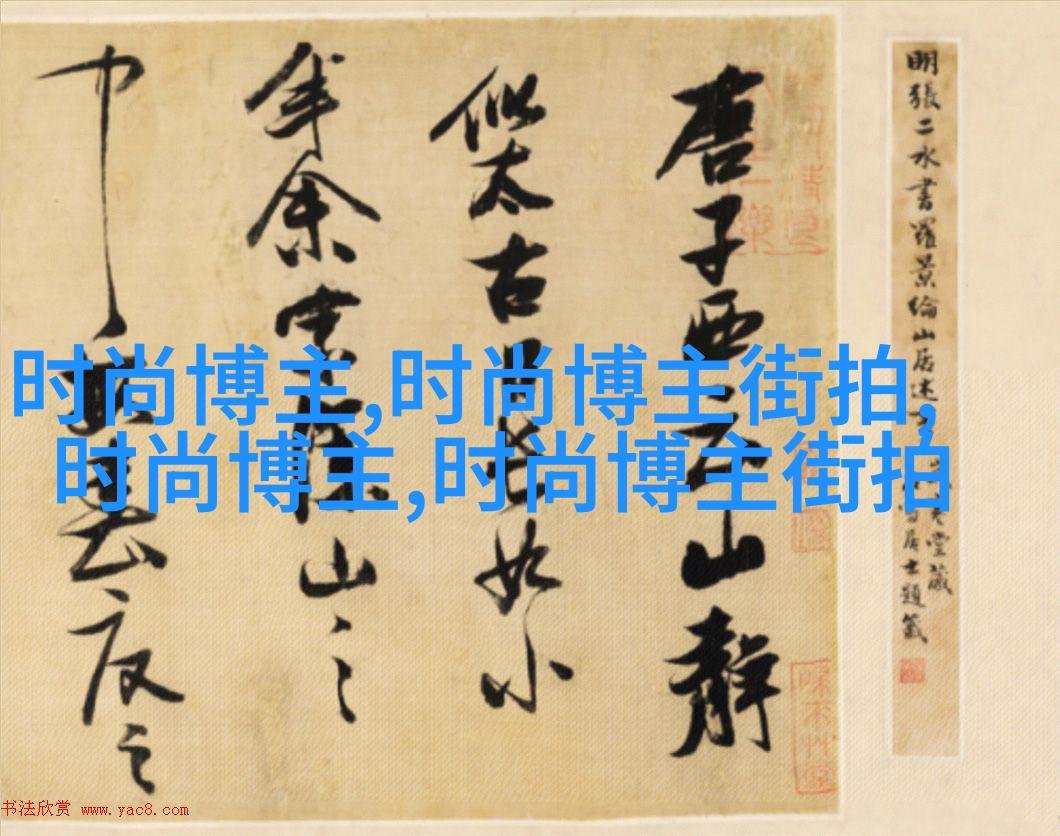 明張二水書羅景綸山居述
堂藏
居士題簽
唐子西云山靜
似太古日長如小
年余家深山之
中每春夏之
时尚博主,时尚博主街拍,
时尚博主,时尚博主街拍
书法欣赏 www.yac8.com